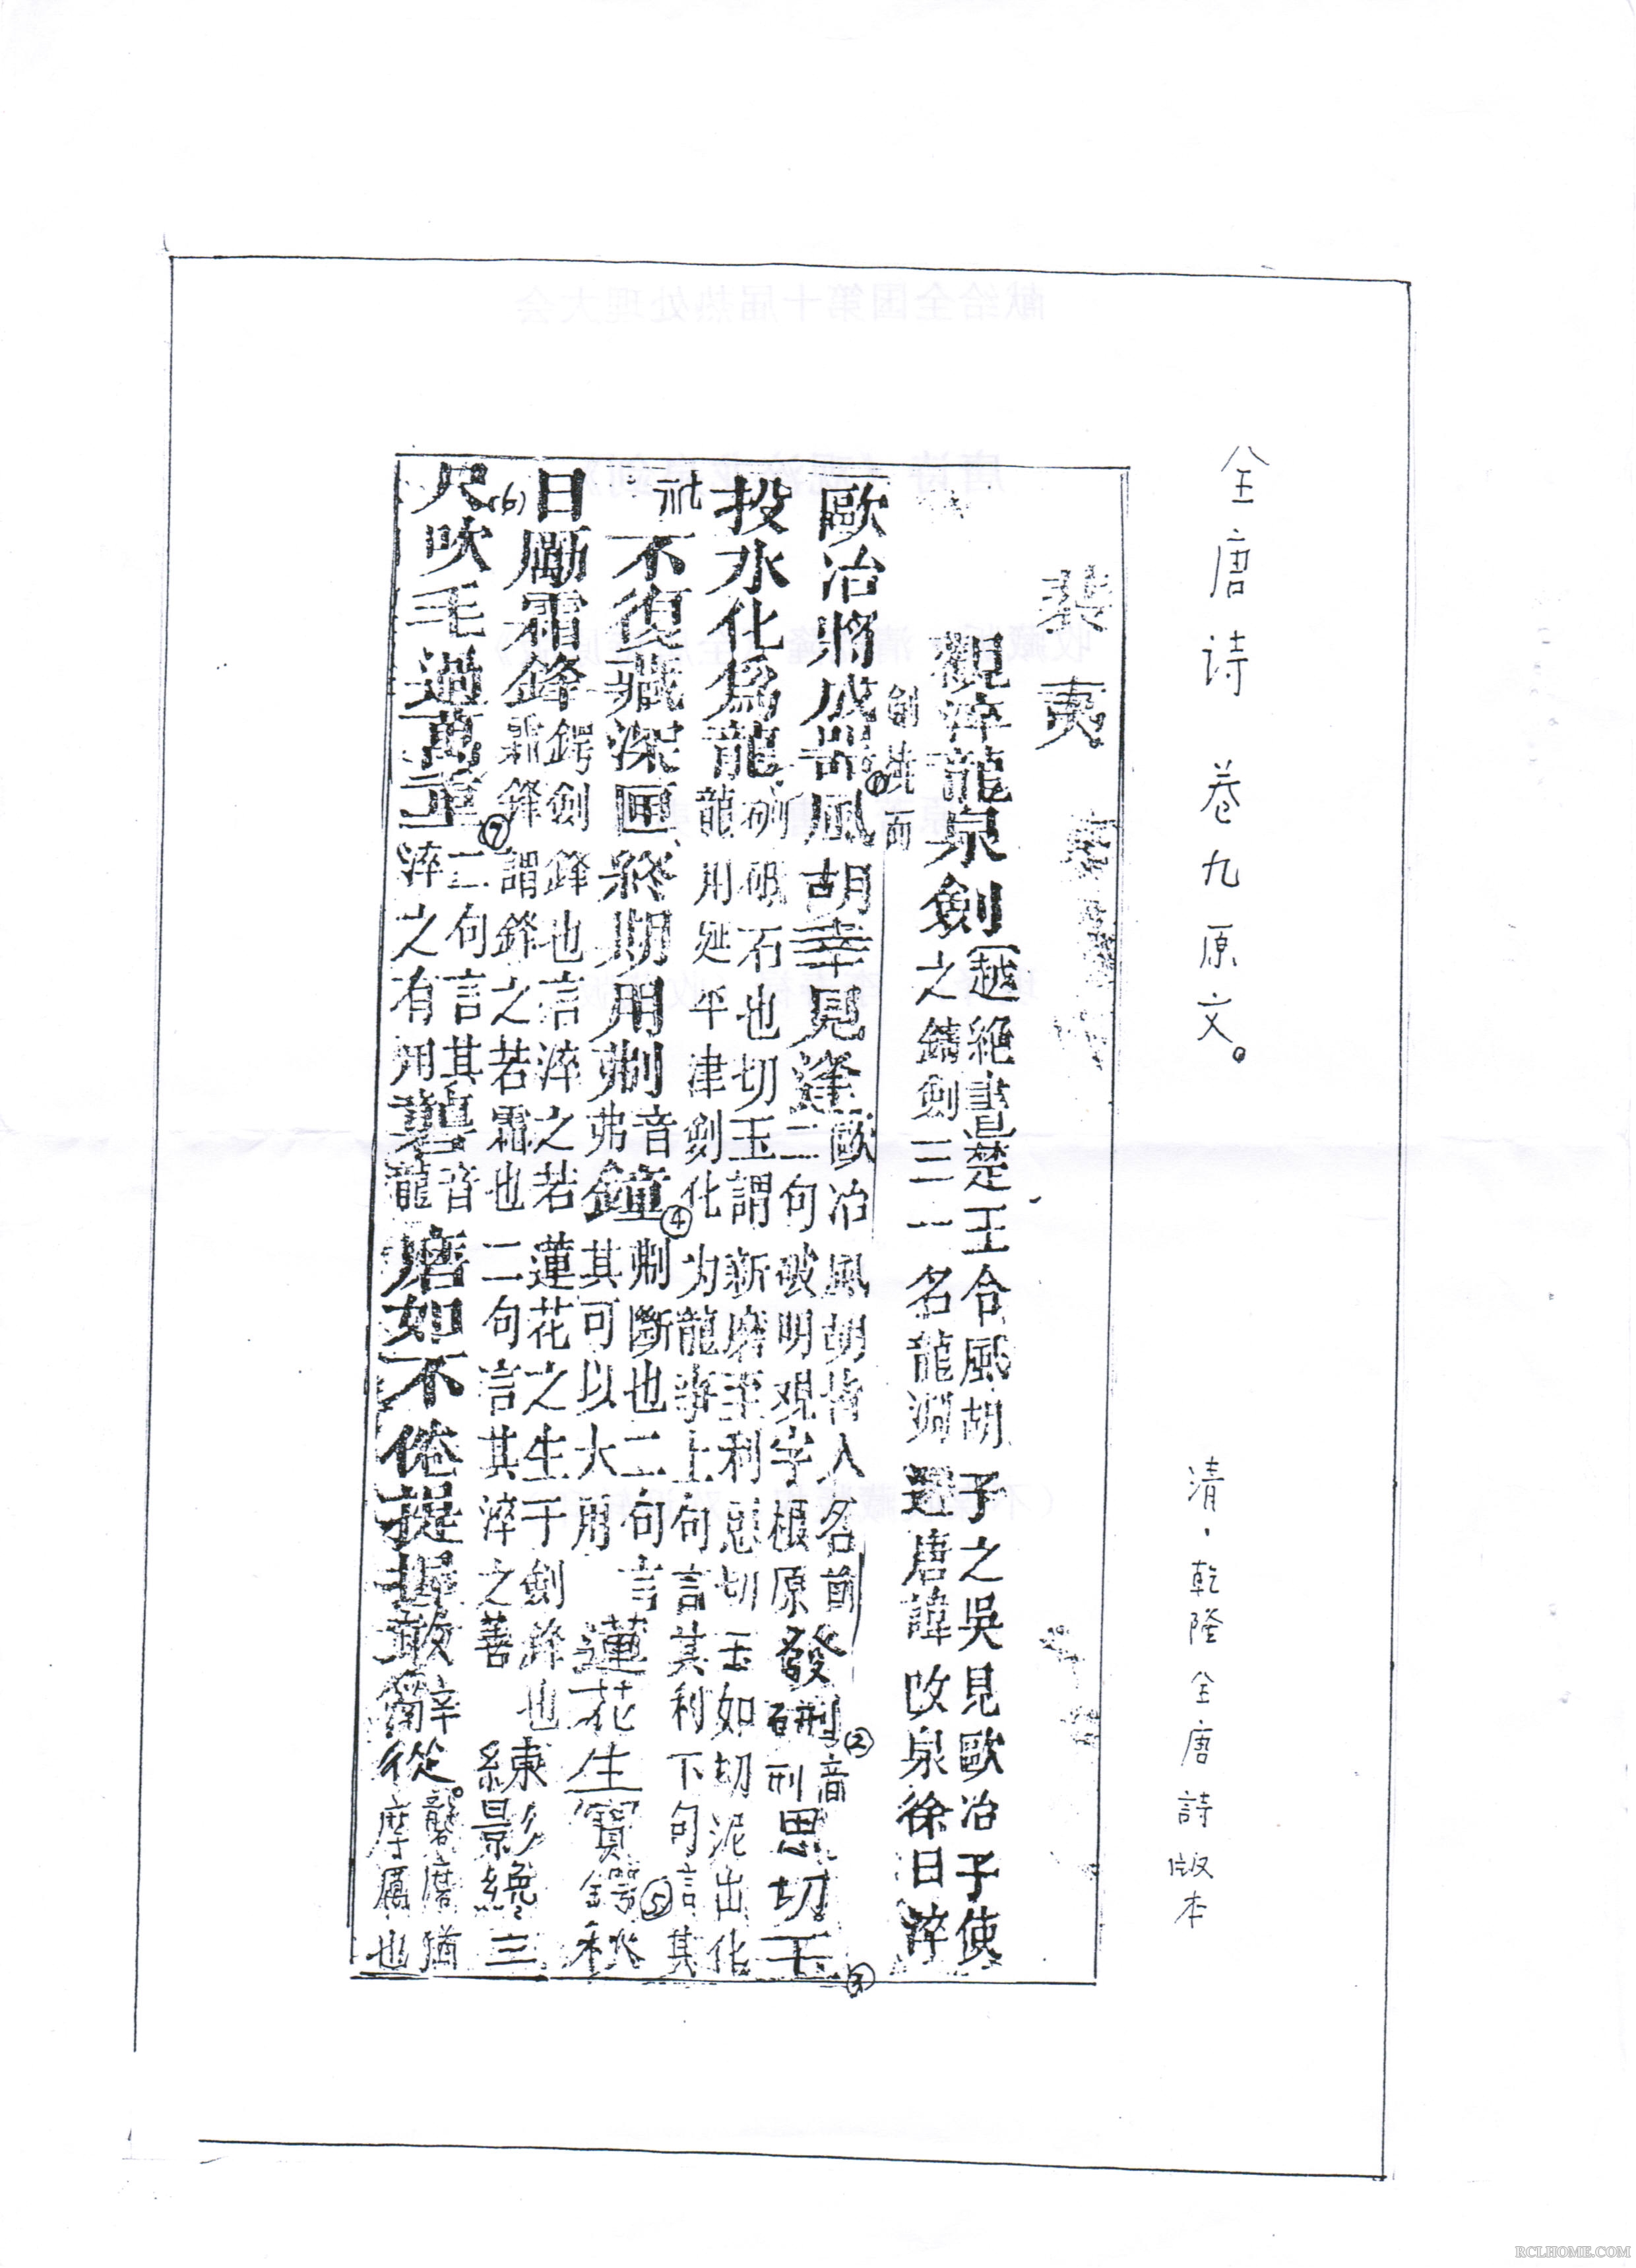 全唐诗 卷九原文。
清·乾隆全唐詩版本
裴夷
觀淬龍泉劍(越絕書楚王令風胡子之吳見歐冶子使
之鑄劍三一名龍淵避唐諱改泉徐曰淬
劍燒而
歐冶將成器①風胡幸見逢歐冶風胡皆人名首
二句破明觀字根原發硎②音刑思切玉③
投水化為龍硎砥石也切玉謂新磨至利思切玉如切泥出化
龍用延平津劍化为龍事上句言其利下句言其
不復藏深匣終期用剸音
弗鐘④剸斷也二句言
其可以大用蓮花生寶鍔⑤秋
日勵霜鋒鍔劍鋒也言淬之若蓮花之生于劍鋒也
鋒謂鋒之若霜也二句言其淬之善練影
練景三
(6)
尺吹毛過萬重⑦二句言其
淬之有用礱音龍磨如不倦提握敢辭從。礱磨猶
摩厲也
RCLHOME.COM